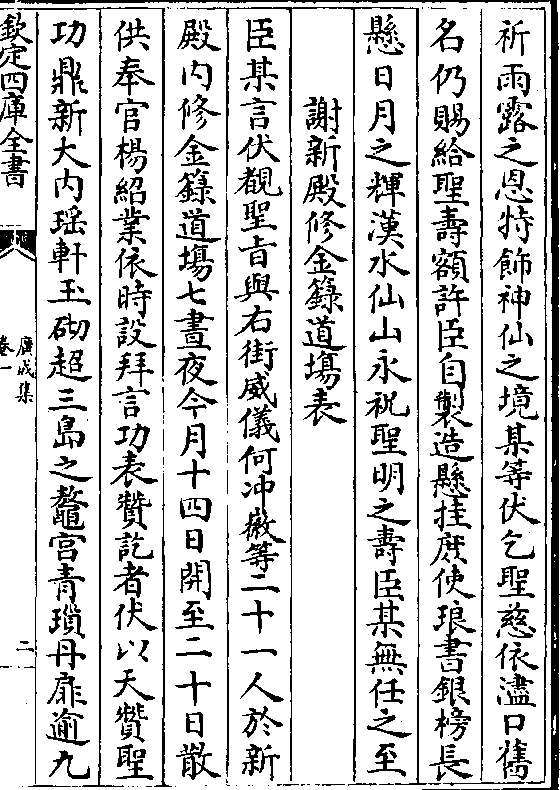 祈雨露之恩特飾神仙之境某等伏乞聖慈依濜口舊
名仍賜給聖壽額許臣自製造懸挂庶使琅書銀榜長
懸日月之輝漢水仙山永祝聖明之壽臣某無任之至
謝新殿修金籙道場表
臣某言伏覩聖㫖與右街威儀何冲𢕄等二十一人於新
殿内修金籙道塲七晝夜今月十四日開至二十日散
供奉官楊紹業依時設拜言功表贊訖者伏以天贊聖
功鼎新大内瑶軒玉砌超三島之鼇宫青瑣丹扉逾九
欽定四庫全書
廣成集
卷一
二